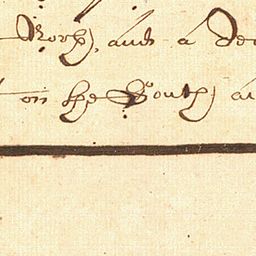 North, and a
on the South, a